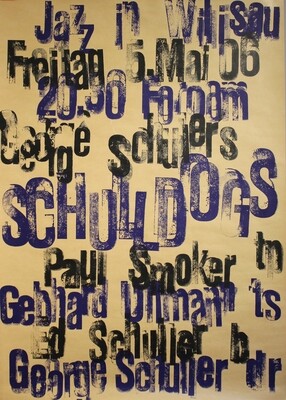 Jazz in Willisau
Freitag 5.Mai 06
20.30
George Schullers
SCHULLDOGS
Paul Smoker
Gebhard Ullmann ts
Ed Schuller b
George Schuller dr